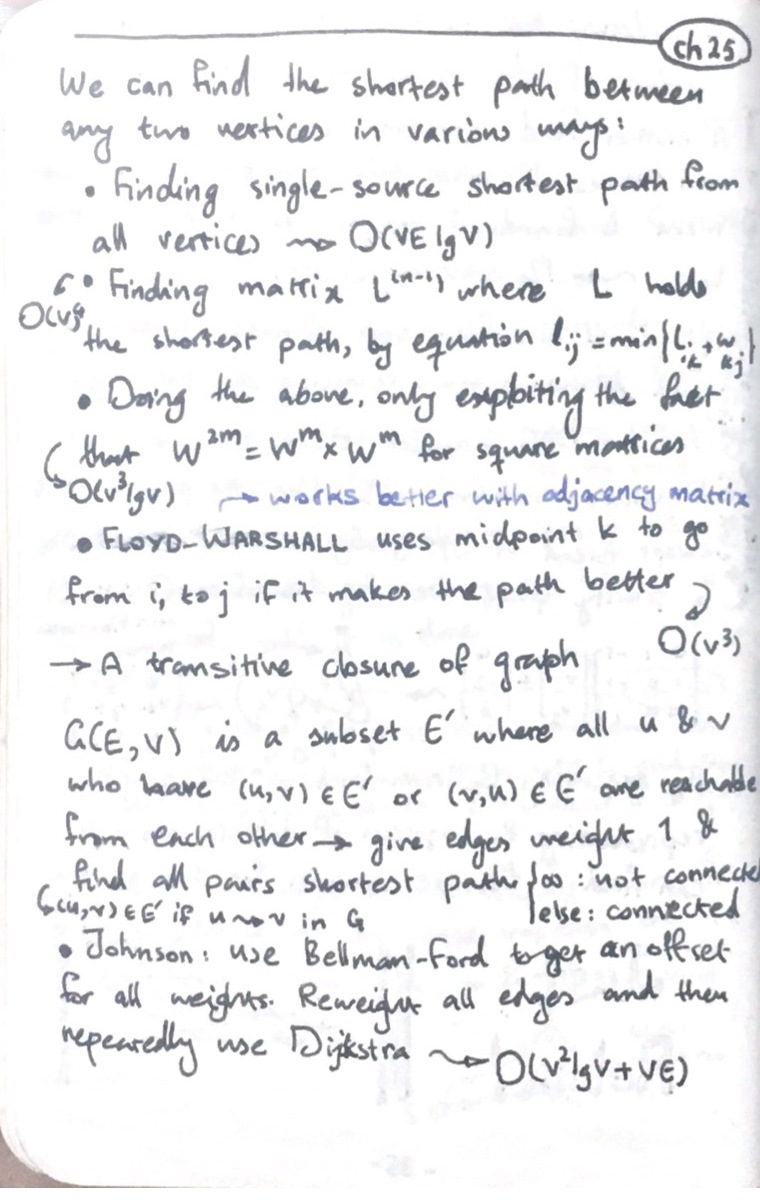 ch 25
We can find the shortest path between
any two vertices in various ways:
• Finding single-source shortest path from
all vertices ⇝ O(VE lgV)
• Finding matrix L⁽ⁿ⁻¹⁾ where L holds
O(V⁴)
the shortest path, by equation lij = min{Lik + wkj}
• Doing the above, only exploiting the fact
that W²ᵐ = Wᵐ × Wᵐ for square matrices
O(V³lgV) → works better with adjacency matrix
• FLOYD-WARSHALL uses midpoint k to go
from i, to j if it makes the path better
O(V³)
→ A transitive closure of graph
G(E, V) is a subset E' where all u & v
who have (u,v) ∈ E' or (v,u) ∈ E' are reachable
from each other → give edges weight 1 &
find all pairs shortest path {∞ : not connected
↳(u,v) ∈ E' if u⇝v in G {else: connected
• Johnson: use Bellman-Ford to get an offset
for all weights. Reweight all edges and then
repeatedly use Dijkstra ⇝ O(V²lgV + VE)